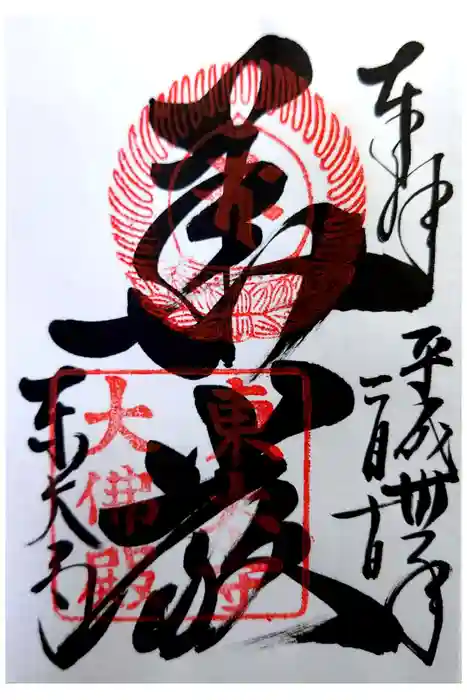 奉拝
平成卅年
二月十日
華厳
東大寺
東大寺
大佛殿